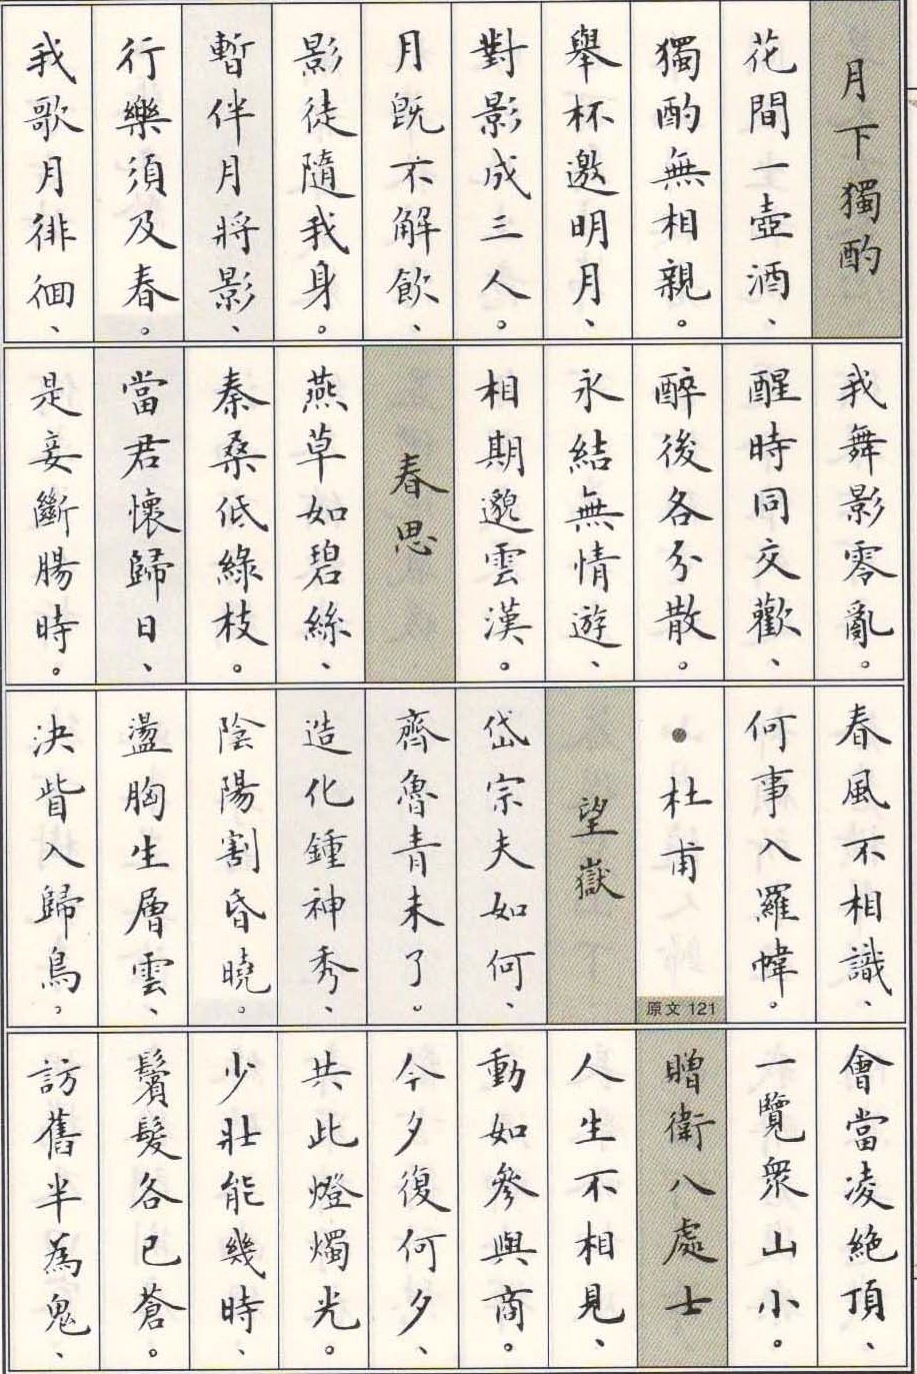 月下獨酌
花間一壺酒、
獨酌無相親。
舉杯邀明月、
對影成三人。
月既不解飲、
影徒隨我身。
暫伴月將影、
行樂須及春。
我歌月徘徊、
我舞影零亂。
醒時同交歡、
醉後各分散。
永結無情遊、
相期邈雲漢。
春思
燕草如碧絲、
秦桑低綠枝。
當君懷歸日、
是妾斷腸時。
春風不相識、
何事入羅幃。
●杜甫
原文 121
望嶽
岱宗夫如何、
齊魯青未了。
造化鍾神秀、
陰陽割昏曉。
盪胸生層雲、
決眥入歸鳥。
會當凌絕頂、
一覽眾山小。
贈衛八處士
人生不相見、
動如參與商。
今夕復何夕、
共此燈燭光。
少壯能幾時、
鬢髮各已蒼。
訪舊半為鬼、